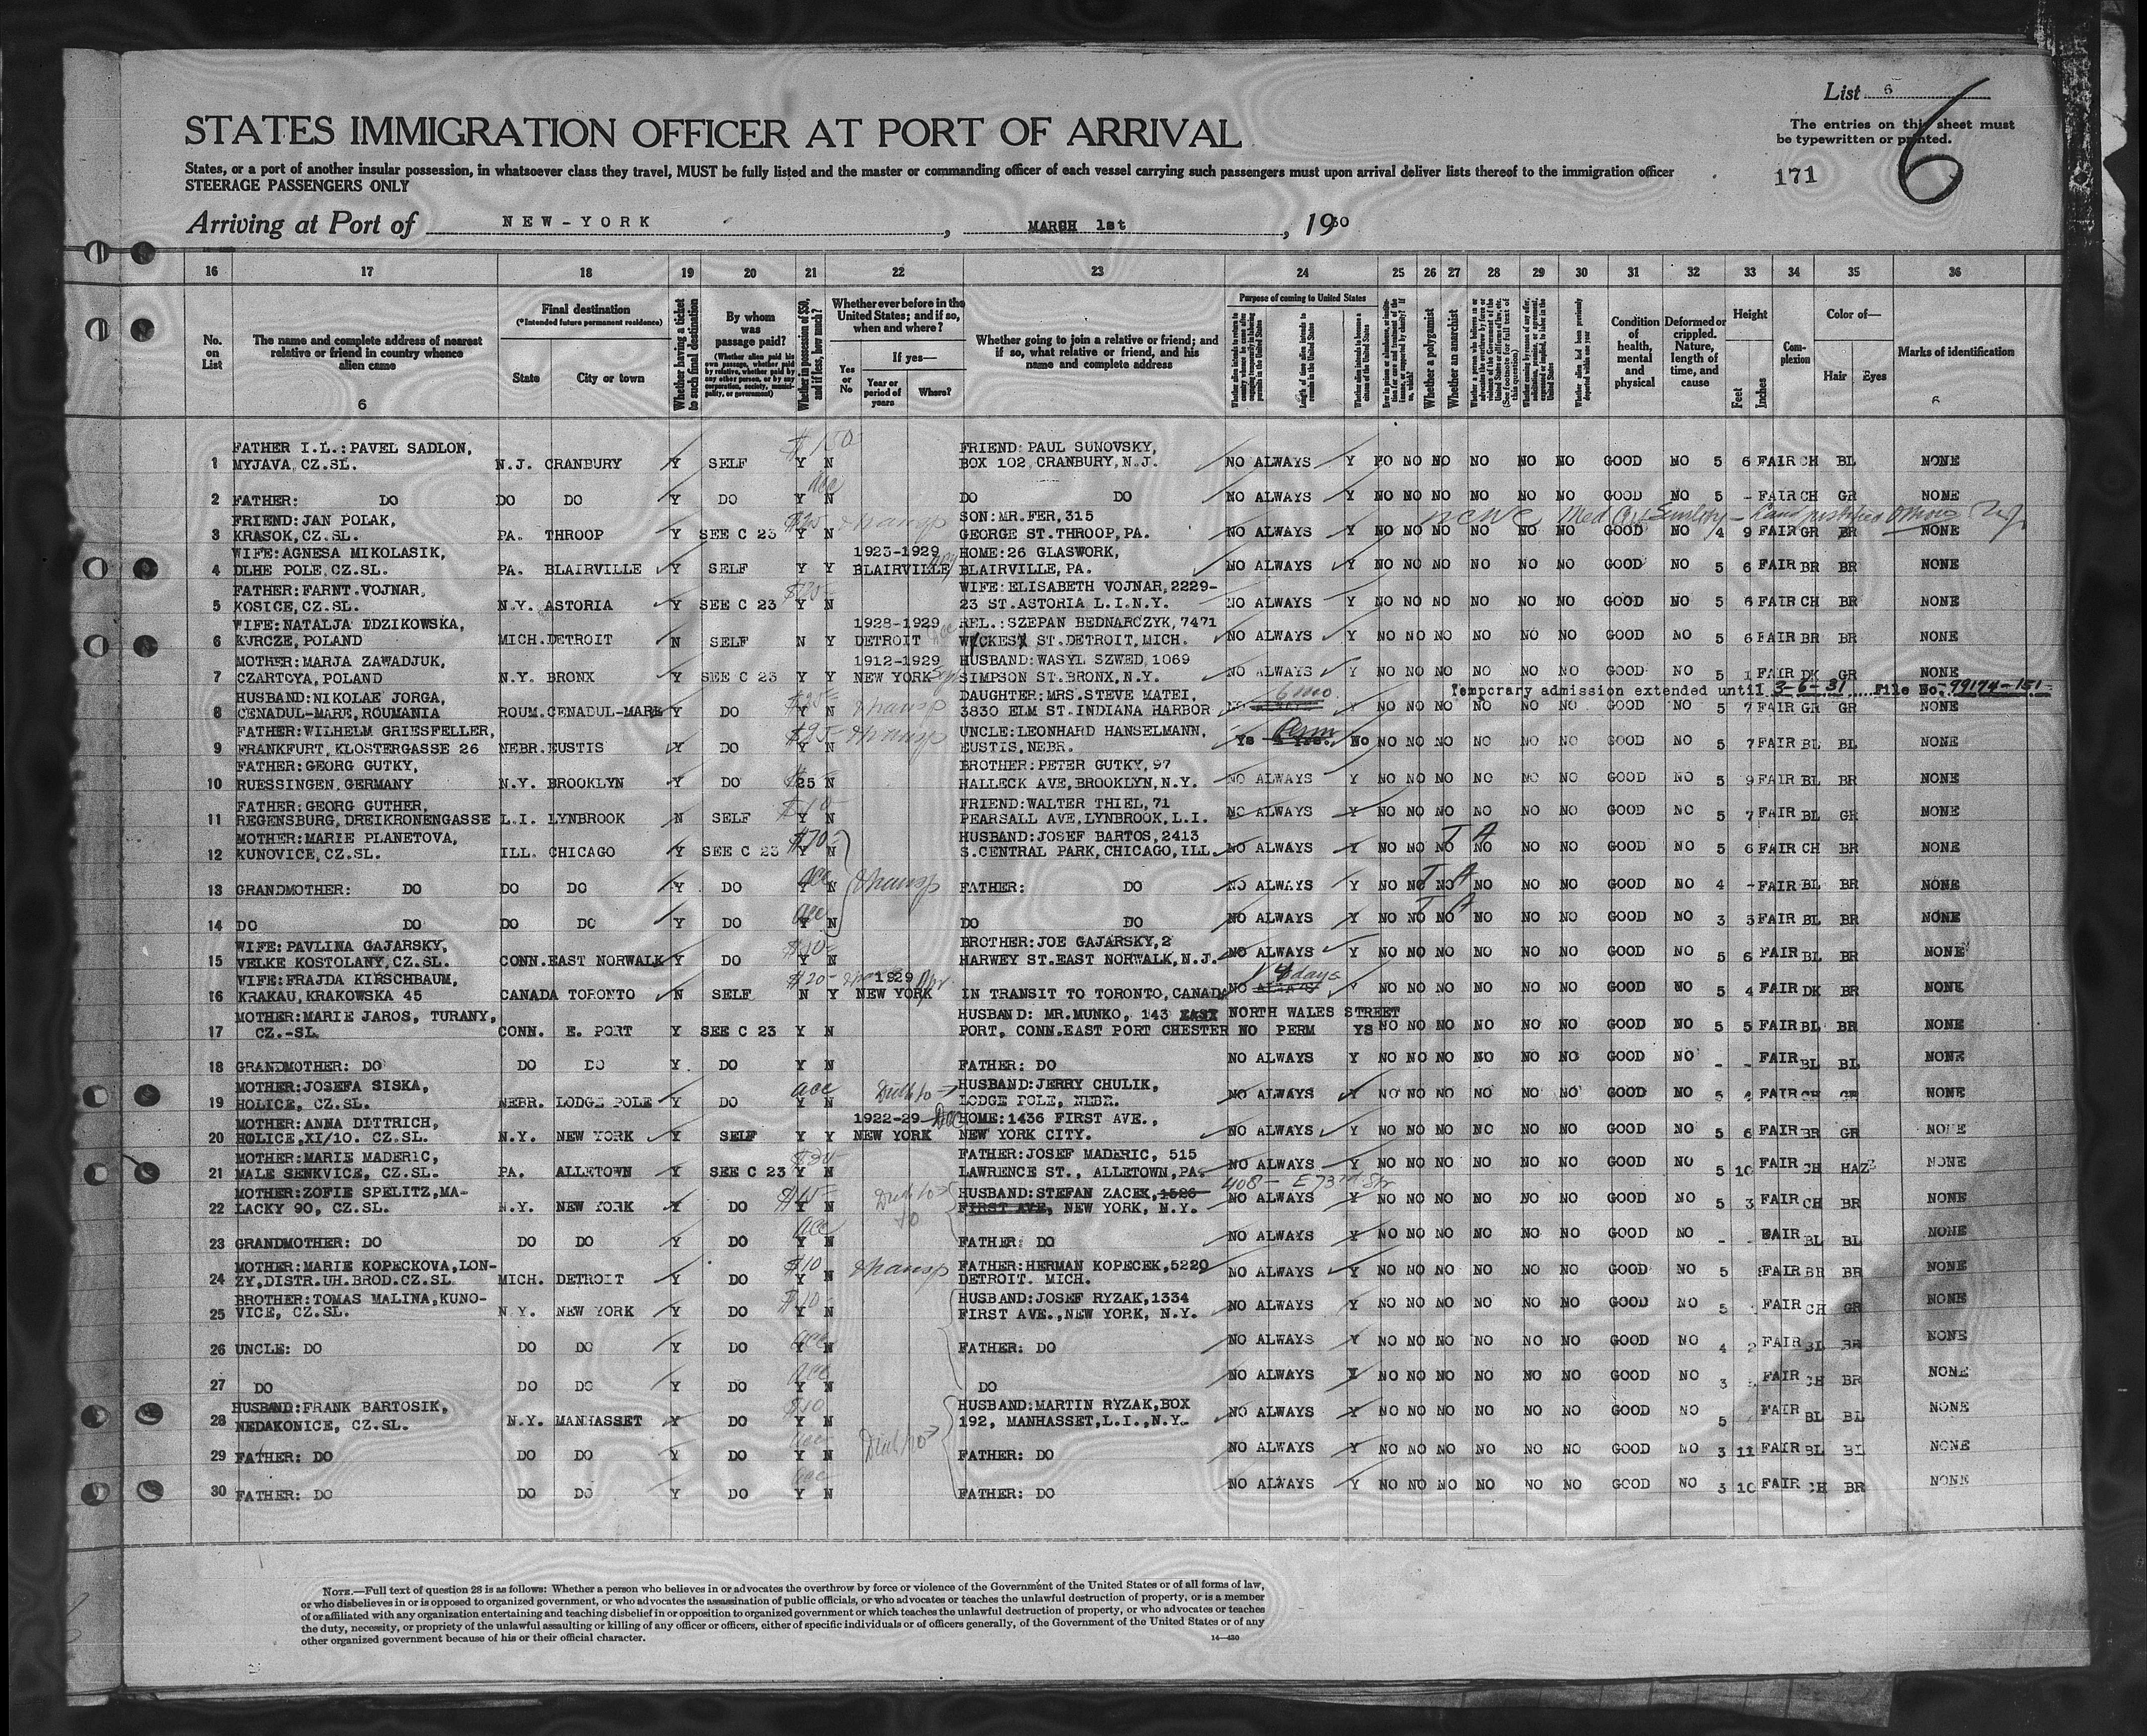 List 6
The entries on this sheet must
be typewritten or printed.
6
171
STATES IMMIGRATION OFFICER AT PORT OF ARRIVAL
States, or a port of another insular possession, in whatsoever class they travel, MUST be fully listed and the master or commanding officer of each vessel carrying such passengers must upon arrival deliver lists thereof to the immigration officer
STEERAGE PASSENGERS ONLY
Arriving at Port of NEW-YORK, MARCH 1st, 1930
16 17 18 19 20 21 22 23 24 25 26 27 28 29 30 31 32 33 34 35 36
No. on List
The name and complete address of nearest relative or friend in country whence alien came
6
Final destination
(*Intended future permanent residence)
State
City or town
Whether having a ticket to such final destination
By whom was passage paid?
(Whether alien paid his own passage, whether paid by relative, whether paid by any other person, or by any corporation, society, municipality, or government)
Whether in possession of $50, and if less, how much?
Whether ever before in the United States; and if so, when and where?
Yes or No
If yes—
Year or period of years
Where?
Whether going to join a relative or friend; and if so, what relative or friend, and his name and complete address
Purpose of coming to United States
Length of time alien intends to remain in the United States
Whether alien intends to become a citizen of the United States
Whether a polygamist
Whether an anarchist
Condition of health, mental and physical
Deformed or crippled. Nature, length of time, and cause
Height
Feet
Inches
Complexion
Color of—
Hair
Eyes
Marks of identification
FATHER I.L.: PAVEL SADLON, $150 FRIENND: PAUL SUNOVSKY,
1 MYJAVA, CZ.SL. N.J. CRANBURY Y SELF Y N BOX 102, CRANBURY, N.J. NO ALWAYS Y NO NO NO NO NO GOOD NO 5 6 FAIR CH BL NONE
2 FATHER: DO DO DO Y DO Y N DO DO NO ALWAYS Y NO NO NO NO NO NO GOOD NO 5 - FAIR CH GR NONE
FRIEND: JAN POLAK, $25 transp SON: MR. FER, 315
3 KRASOK, CZ.SL. PA. THROOP Y SEE C 23 Y N GEORGE ST. THROOP, PA. NO ALWAYS Y NO NO NO NO NO NO GOOD NO 4 9 FAIR GR BR NONE
WIFE: AGNESA MIKOLASIK, 1923-1929 HOME: 26 GLASWORK,
4 DLHE POLE, CZ.SL. PA. BLAIRVILLE Y SELF Y Y BLAIRVILLE BLAIRVILLE, PA. NO ALWAYS Y NO NO NO NO NO NO GOOD NO 5 6 FAIR BR BR NONE
FATHER: FARNT. VOJNAR, $25 WIFE: ELISABETH VOJNAR, 2229-
5 KOSICE, CZ.SL. N.Y. ASTORIA Y SEE C 23 Y N 23 ST. ASTORIA L.I.N.Y. NO ALWAYS Y NO NO NO NO NO NO GOOD NO 5 6 FAIR CH BR NONE
WIFE: NATALJA IDZIKOWSKA, 1928-1929 REL.: SZEPAN BEDNARCZYK, 7471
6 KURCZE, POLAND MICH. DETROIT N SELF N Y DETROIT ST. DETROIT, MICH. NO ALWAYS Y NO NO NO NO NO NO GOOD NO 5 6 FAIR BR BR NONE
MOTHER: MARJA ZAWADJUK, 1912-1929 HUSBAND: WASYL SZWED, 1069
7 CZARTOYA, POLAND N.Y. BRONX Y SEE C 23 Y Y NEW YORK SIMPSON ST. BRONX, N.Y. NO ALWAYS Y NO NO NO NO NO NO GOOD NO 5 1 FAIR DK GR NONE
HUSBAND: NIKOLAE JORGA, DAUGHTER: MRS. STEVE MATEI, 6 mo. Temporary admission extended until 3-6-31 File No. 99174-151
8 CENADUL-MARE, ROUMANIA ROUM. CENADUL-MARE Y DO Y N transp 3830 ELM ST. INDIANA HARBOR NO ALWAYS Y NO NO NO NO NO NO GOOD NO 5 7 FAIR GR GR NONE
FATHER: WILHELM GRIESFELLER, $25 transp UNCLE: LEONHARD HANSELMANN, Perm
9 FRANKFURT, KLOSTERGASSE 26 NEBR. EUSTIS Y DO Y N EUSTIS, NEBR. Ys No NO NO NO NO NO NO GOOD NO 5 7 FAIR BL BL NONE
FATHER: GEORG GUTKY, BROTHER: PETER GUTKY, 97
10 RUESSINGEN, GERMANY N.Y. BROOKLYN Y DO $25 N HALLECK AVE, BROOKLYN, N.Y. NO ALWAYS Y NO NO NO NO NO NO GOOD NO 5 9 FAIR BL BR NONE
FATHER: GEORG GUTHER, $10 FRIEND: WALTER THIEL, 71
11 REGENSBURG, DREIKRONENGASSE L.I. LYNBROOK N SELF Y N PEARSALL AVE, LYNBROOK, L.I. NO ALWAYS Y NO NO NO NO NO NO GOOD NO 5 7 FAIR BL GR NONE
MOTHER: MARIE PLANETOVA, $70 HUSBAND: JOSEF BARTOS, 2413 T A
12 KUNOVICE, CZ.SL. ILL. CHICAGO Y SEE C 23 Y N S. CENTRAL PARK, CHICAGO, ILL. NO ALWAYS Y NO NO NO NO NO NO GOOD NO 5 6 FAIR CH BR NONE
13 GRANDMOTHER: DO DO DO Y DO Y N transp FATHER: DO NO ALWAYS Y NO NO NO NO NO NO GOOD NO 4 - FAIR BL BR NONE
14 DO DO DO DO Y DO Y N DO DO NO ALWAYS Y NO NO NO NO NO NO GOOD NO 3 3 FAIR BL BR NONE
WIFE: PAVLINA GAJARSKY, $10 BROTHER: JOE GAJARSKY, 2
15 VELKE KOSTOLANY, CZ.SL. CONN. EAST NORWALK Y DO Y N HARWEY ST. EAST NORWALK, N.J. NO ALWAYS Y NO NO NO NO NO NO GOOD NO 5 6 FAIR BL BR NONE
WIFE: FRAJDA KIRSCHBAUM, $20 1929 days
16 KRAKAU, KRAKOWSKA 45 CANADA TORONTO N SELF N Y NEW YORK IN TRANSIT TO TORONTO, CANADA NO ALWAYS Y NO NO NO NO NO NO GOOD NO 5 4 FAIR DK BR NONE
MOTHER: MARIE JAROS, TURANY, HUSBAND: MR. MUNKO, 143 EAST NORTH WALES STREET
17 CZ.-SL. CONN. E. PORT Y SEE C 23 Y N PORT, CONN. EAST PORT CHESTER NO PERM YS NO NO NO NO NO NO GOOD NO 5 5 FAIR BL BR NONE
18 GRANDMOTHER: DO DO DO Y DO Y N FATHER: DO NO ALWAYS Y NO NO NO NO NO NO GOOD NO - - FAIR BL BL NONE
MOTHER: JOSEFA SISKA, acc HUSBAND: JERRY CHULIK,
19 HOLICE, CZ.SL. NEBR. LODGE POLE Y DO Y N LODGE POLE, NEBR. NO ALWAYS Y NO NO NO NO NO NO GOOD NO 5 FAIR CH GR NONE
MOTHER: ANNA DITTRICH, 1922-29 Dec HOME: 1436 FIRST AVE.,
20 HOLICE, XI/10. CZ.SL. N.Y. NEW YORK Y SELF Y Y NEW YORK NEW YORK CITY. NO ALWAYS Y NO NO NO NO NO NO GOOD NO 5 6 FAIR BR GR NONE
MOTHER: MARIE MADERIC, FATHER: JOSEF MADERIC, 515
21 MALE SENKVICE, CZ.SL. PA. ALLETOWN Y SEE C 23 Y N LAWRENCE ST., ALLETOWN, PA. NO ALWAYS Y NO NO NO NO NO NO GOOD NO 5 10 FAIR CH HAZ NONE
MOTHER: ZOFIE SPELITZ, MA- HUSBAND: STEFAN ZACEK, 1526 408 - E 73rd Str
22 LACKY 90, CZ.SL. N.Y. NEW YORK Y DO Y N FIRST AVE, NEW YORK, N.Y. NO ALWAYS Y NO NO NO NO NO NO GOOD NO 5 3 FAIR CH BR NONE
23 GRANDMOTHER: DO DO DO Y DO Y N FATHER: DO NO ALWAYS Y NO NO NO NO NO NO GOOD NO - - FAIR BL BL NONE
MOTHER: MARIE KOPECKOVA, LON- $10 transp FATHER: HERMAN KOPECEK, 5229
24 ZY, DISTR. UH. BROD. CZ.SL MICH. DETROIT Y DO Y N DETROIT. MICH. NO ALWAYS Y NO NO NO NO NO NO GOOD NO 5 FAIR BR BR NONE
BROTHER: TOMAS MALINA, KUNO- $10 HUSBAND: JOSEF RYZAK, 1334
25 VICE, CZ.SL. N.Y. NEW YORK Y DO Y N FIRST AVE., NEW YORK, N.Y. NO ALWAYS Y NO NO NO NO NO NO GOOD NO 5 FAIR CH GR NONE
26 UNCLE: DO DO DO Y DO Y N FATHER: DO NO ALWAYS Y NO NO NO NO NO NO GOOD NO 4 2 FAIR BL BR NONE
27 DO DO DO Y DO Y N DO NO ALWAYS Y NO NO NO NO NO NO GOOD NO 3 FAIR CH BR NONE
HUSBAND: FRANK BARTOSIK, $10 HUSBAND: MARTIN RYZAK, BOX
28 NEDAKONICE, CZ.SL. N.Y. MANHASSET Y DO Y N 192, MANHASSET, L.I., N.Y. NO ALWAYS Y NO NO NO NO NO NO GOOD NO 5 FAIR BL BL NONE
29 FATHER: DO DO DO Y DO Y N FATHER: DO NO ALWAYS Y NO NO NO NO NO NO GOOD NO 3 11 FAIR BL BL NONE
30 FATHER: DO DO DO Y DO Y N FATHER: DO NO ALWAYS Y NO NO NO NO NO NO GOOD NO 3 10 FAIR CH BR NONE
NOTE.—Full text of question 28 is as follows: Whether a person who believes in or advocates the overthrow by force or violence of the Government of the United States or of all forms of law,
or who disbelieves in or is opposed to organized government, or who advocates the assassination of public officials, or who advocates or teaches the unlawful destruction of property, or is a member
of or affiliated with any organization entertaining and teaching disbelief in or opposition to organized government or which teaches the unlawful destruction of property, or who advocates or teaches
the duty, necessity, or propriety of the unlawful assaulting or killing of any officer or officers, either of specific individuals or of officers generally, of the Government of the United States or of any
other organized government because of his or their official character.
14—430